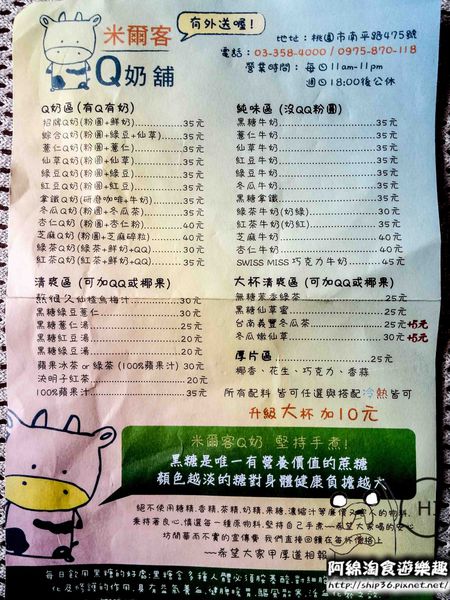 米爾客
Q奶舖
有外送喔!
地址:桃園市南平路475號
電話:03-358-4000 / 0975-870-118
營業時間:每日11am-11pm
週日18:00後公休
Q奶區 (有Q有奶)
招牌Q奶 (粉圓+鮮奶) 35元
綜合Q奶 (粉圓+綠豆+仙草) 35元
薏仁Q奶 (粉圓+薏仁) 35元
仙草Q奶 (粉圓+仙草) 35元
綠豆Q奶 (粉圓+綠豆) 35元
紅豆Q奶 (粉圓+紅豆) 35元
拿鐵Q奶 (研磨咖啡+牛奶) 35元
冬瓜Q奶 (粉圓+冬瓜茶) 35元
杏仁Q奶 (粉圓+杏仁粉) 40元
芝麻Q奶 (粉圓+芝麻碎粒) 40元
綠茶Q奶 (綠茶+鮮奶+QQ) 30元
紅茶Q奶 (紅茶+鮮奶+QQ) 35元
純味區 (沒QQ粉圓)
黑糖牛奶 35元
薏仁牛奶 35元
仙草牛奶 35元
紅豆牛奶 35元
綠豆牛奶 35元
冬瓜牛奶 35元
黑糖拿鐵 35元
綠茶牛奶 (奶綠) 30元
紅茶牛奶 (奶紅) 35元
芝麻牛奶 40元
杏仁牛奶 40元
SWISS MISS 巧克力牛奶 45元
清爽區 (可加QQ或椰果)
仙楂烏梅汁 30元
黑糖綠豆薏仁 30元
黑糖薏仁湯 25元
黑糖紅豆湯 20元
黑糖綠豆湯 20元
蘋果冰茶or綠茶 (100%蘋果汁) 30元
決明子紅茶 20元
100%蘋果汁 35元
大杯清爽區 (可加QQ或椰果)
無糖茉香綠茶 25元
黑糖仙草蜜 25元
台南義豐冬瓜茶 25元+5元
冬瓜嫩仙草 30元+5元
厚片區 25元
椰香、花生、巧克力、香蒜
所有配料 皆可任選與搭配冷熱皆可
升級大杯 加10元
米爾客Q奶 堅持手煮!
黑糖是唯一有營養價值的蔗糖
顏色越淡的糖對身體健康負擔越大
絕不使用糖精,香精,茶精,奶精,果糖,濃縮汁等廉價又害人的物料,
秉持著良心,慎選每一樣原物料,堅持自己手煮—希望大家喝的安心
坊間華而不實的宣傳費 我們直接回饋在每杯價格上
~~希望大家甲厚道相報
阿綿淘食遊樂趣
http://ship36.pixnet.net/